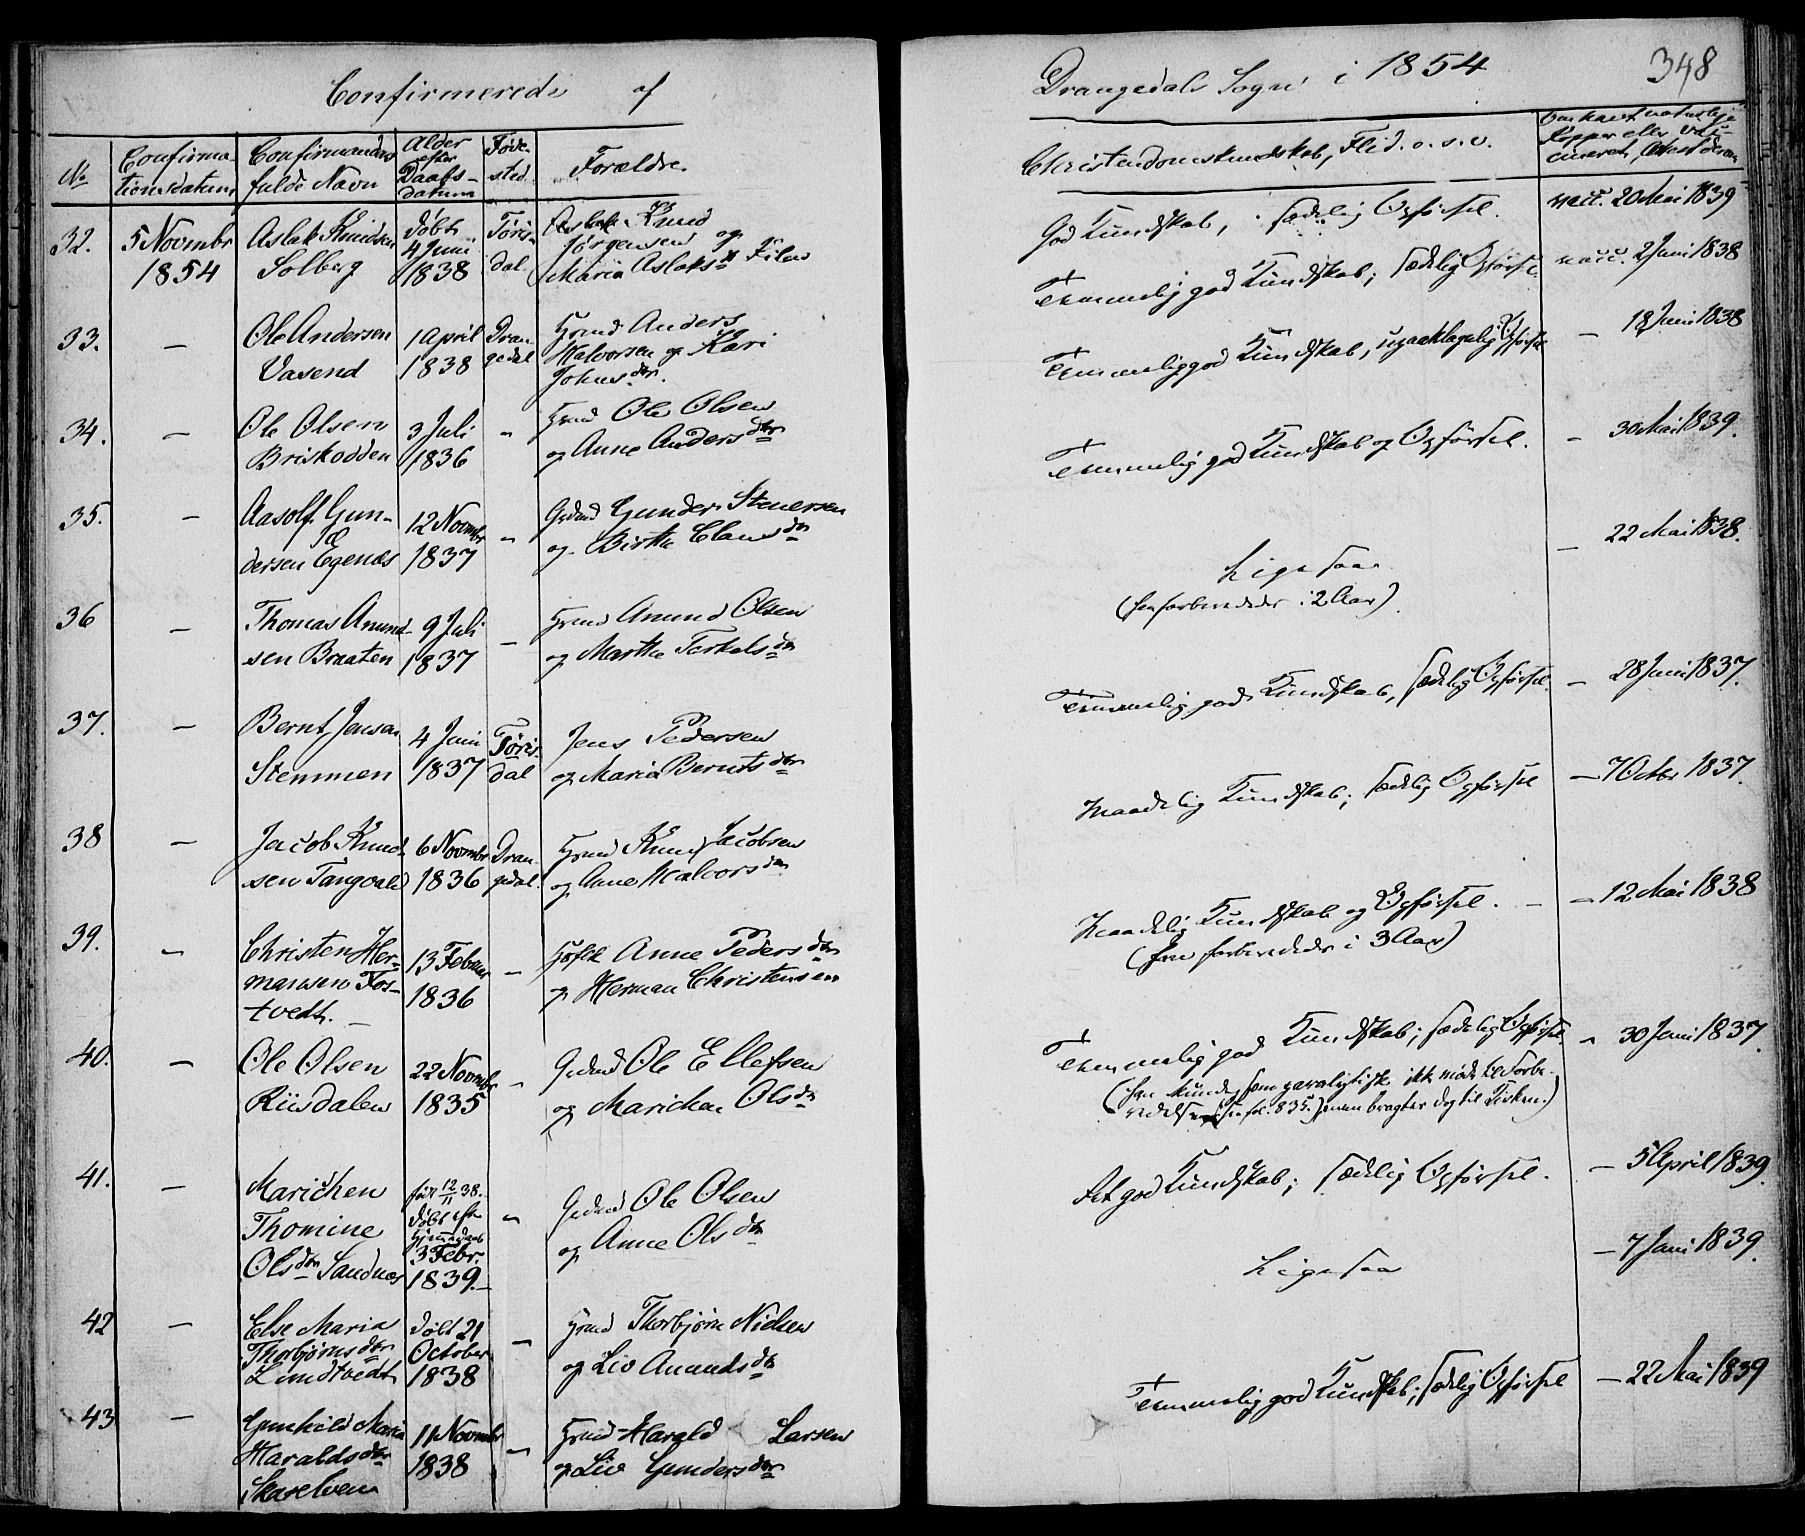 Confirmerede af
Drangedals Sogn i 1854
348
No
Confirma-
tionsdatum
Confirmandens
fulde Navn
Alder
efter
Daabs-
datum
Føde-
sted
Forældre
Christendomskundskab, Flid o.s.v.
32.
5 Novembr
1854
Aslak Knudsen
Solberg
døbt
4 Juni
1838
Tøris-
dal
Knud
Jørgensen og
Maria Aslaksdr
God Kundskab, sædelig Opførsel.
vacc. 20 Mai 1839
33.
—
Ole Andersen
Vasend
1 April
1838
Dran-
gedal
Grmd Anders
Halvorsen og Kari
Johnsdtr.
Temmelig god Kundskab, sædelig Opførsel
vacc. 2 Juni 1838
34.
—
Ole Olsen
Briskodden
3 Juli
1836
"
Grmd Ole Olsen
og Anne Andersdtr
Temmelig god Kundskab, upaaklagelig Opførsel
— 18 Juni 1838
35.
—
Aasolf Gun-
dersen Egenæs
12 Novmbr
1837
"
Gdmd Gunder Stenersen
og Birthe Clausdtr
Temmelig god Kundskab og Opførsel.
— 30 Mai 1839.
36
—
Thomas Anund-
sen Braaten
9 Juli
1837
—
Grmd Anund Olsen
og Marthe Terkelsdtr
Ligesaa
(forberedes i 2 Aar).
— 22 Mai 1838.
37.
—
Bernt Jensen
Stemmen
4 Juni
1837
Tøris-
dal
Jens Pedersen
og Maria Berntsdtr
Temmelig god Kundskab, sædelig Opførsel.
— 28 Juni 1837.
38
—
Jacob Knud-
sen Tangvald
6 Novmbr
1836
Dran-
gedal
Grmd Knud Jacobsen
og Anne Halvorsdtr
Maadelig Kundskab; sædelig Opførsel
— 7 Octbr 1837.
39.
—
Christen Her-
mansen Fos-
tvedt.
13 Februar
1836
—
Anne Pedersdtr
og Herman Christensen
Maadelig Kundskab og Opførsel.
(forberedes i 3 Aar)
— 12 Mai 1838
40.
—
Ole Olsen
Riisdalen
22 Novmbr
1835
"
Gdmd Ole Ellefsen
og Marichen Olsdtr
Temmelig god Kundskab; sædelig Opførsel.
(han kunde som paralytisk ikke møde til Forbe-
redelse men bragtes dog til Kirken.)
— 30 Juni 1837.
41.
—
Marichen
Thomine
Olsdtr Sandnæs
født 12/11 38.
døbt
3 Febr.
1839.
"
Gdmd Ole Olsen
og Anne Olsdtr
Ret god Kundskab; sædelig Opførsel.
— 5 April 1839.
42
—
Else Maria
Thorbjørnsdtr
Lindtvedt
døbt 21
October
1838
—
Grmd Thorbjørn Nielsen
og Liv Anundsdtr
Ligesaa
— 7 Juni 1839.
43
—
Gunhild Maria
Haraldsdtr
11 Novmbr
1838
"
Grmd Harald Larsen
og Liv Gundersdtr
Temmelig god Kundskab; sædelig Opførsel
— 22 Mai 1839